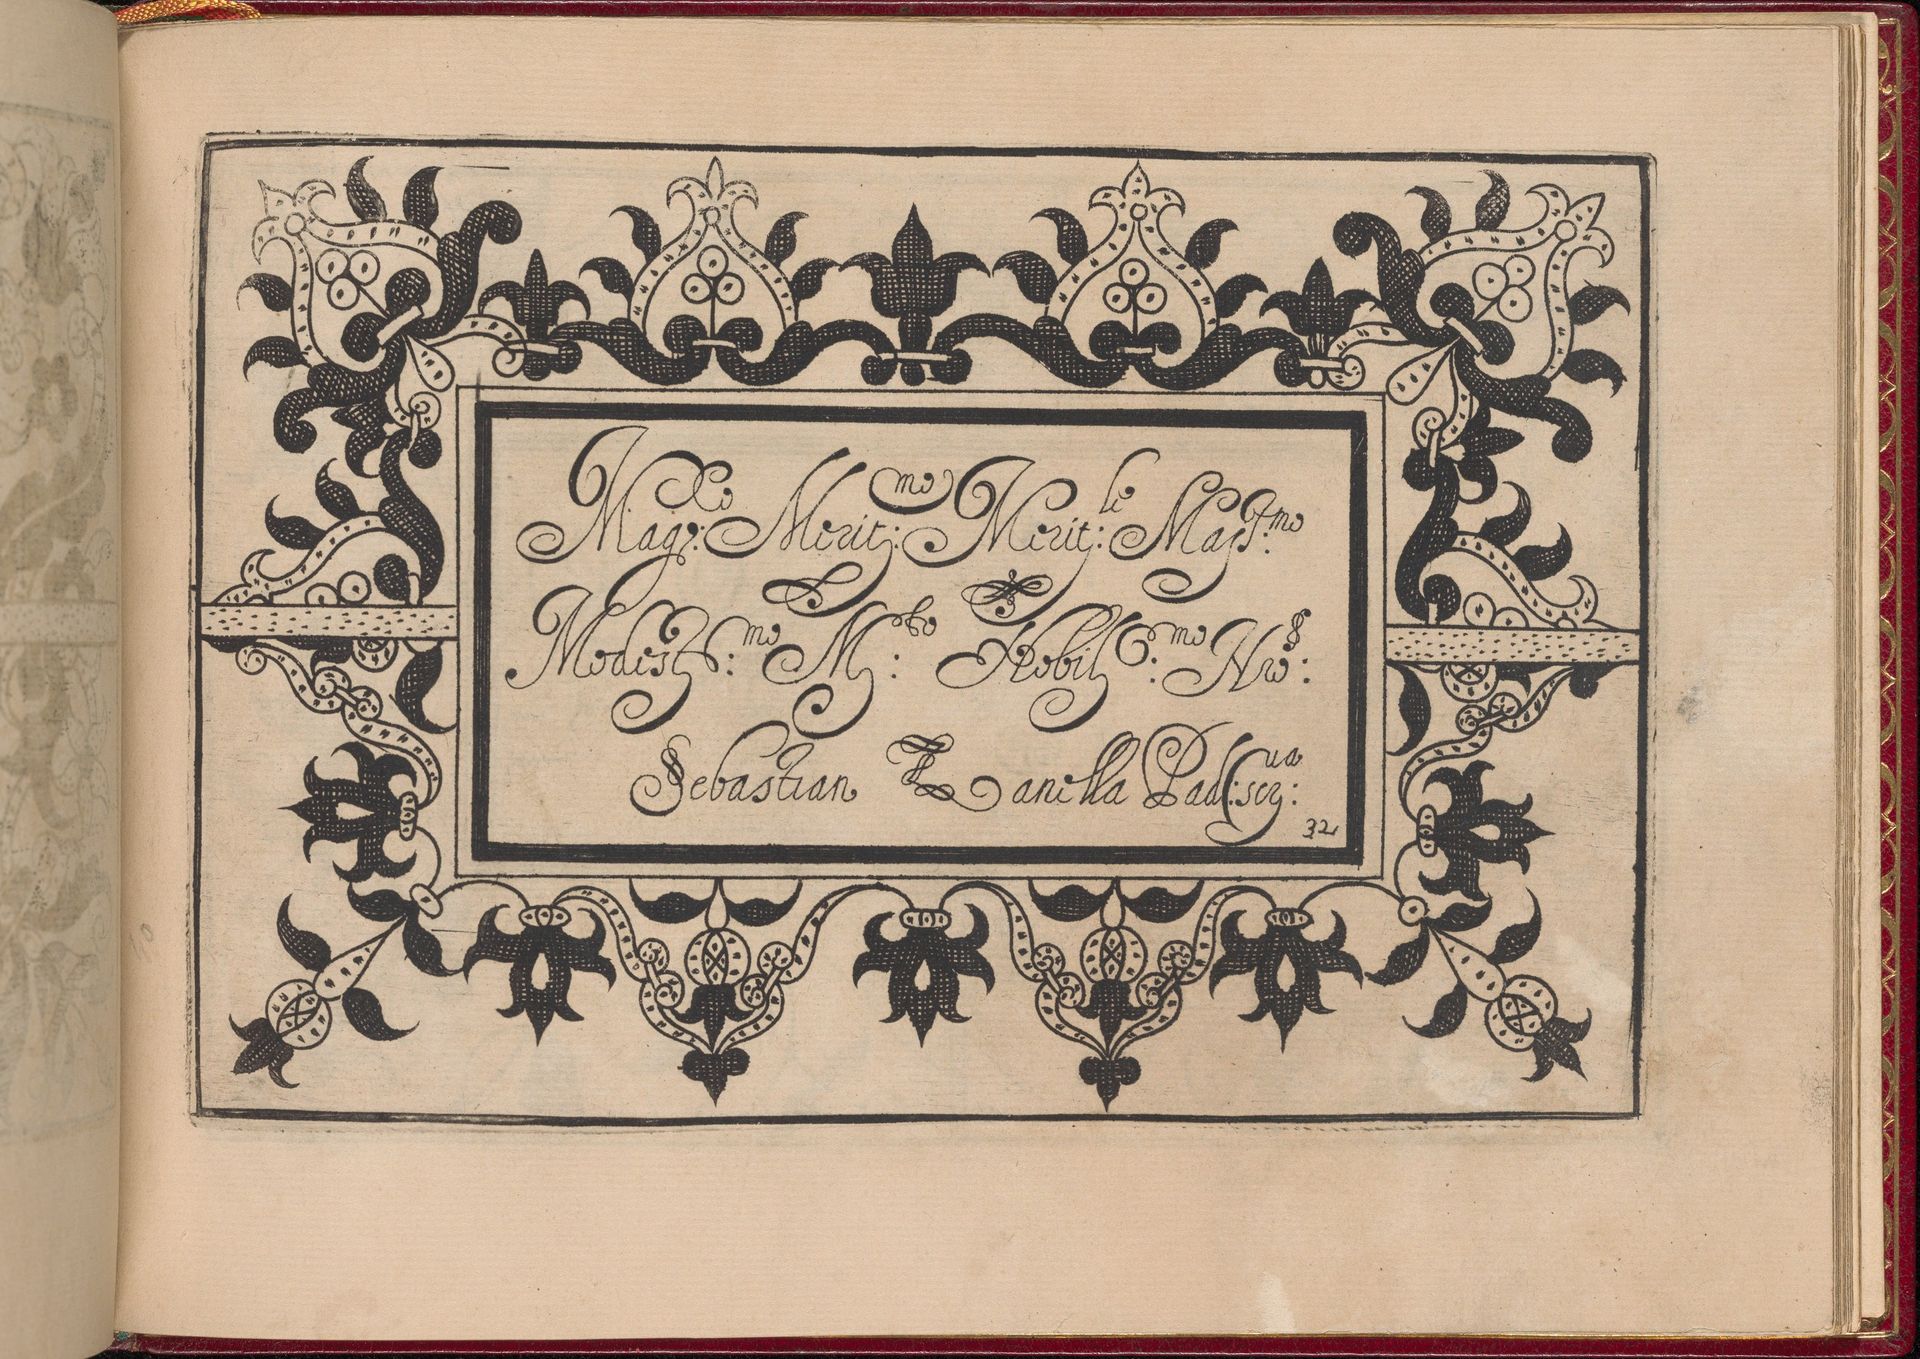 Magᶜᵒ: Merit:ᵐᵒ Merit:ˡᵉ Maest:ᵐᵒ
Modest:ᵐᵒ M: Nobil:ᵐᵒ Nrō:
Sebastian Zanella Pad:ᵘᵃ scr:
32